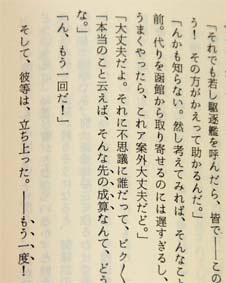 「それでも若し駆逐艦を呼んだら、皆で――この
う! その方がかえって助かるんだ。」
「んかも知らない。然し考えてみれば、そんなこと
前。代りを函館から取り寄せるのには遅すぎるし、
うまくやったら、これア案外大丈夫だど。」
「大丈夫だよ。それに不思議に誰だって、ビク〱
「本当のこと云えば、そんな先の成算なんて、どう
な。」
「ん、もう一回だ!」
そして、彼等は、立ち上った。――もう一度!